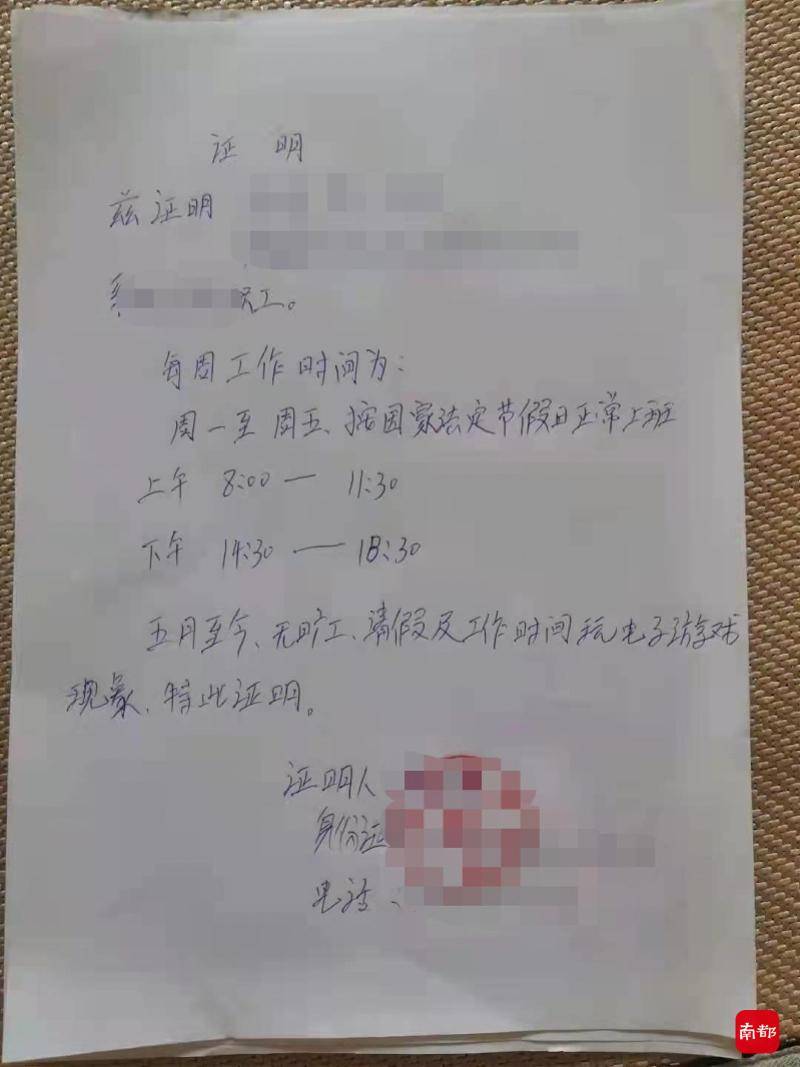 证 明
兹证明
系
员工。
每周工作时间为:
周一至周五、按国家法定节假日正常上班
上午 8:00 — 11:30
下午 14:30 — 18:30
五月至今、无旷工、请假及工作时间玩电子游戏
现象、特此证明。
证明人
身份证
电话:
南都